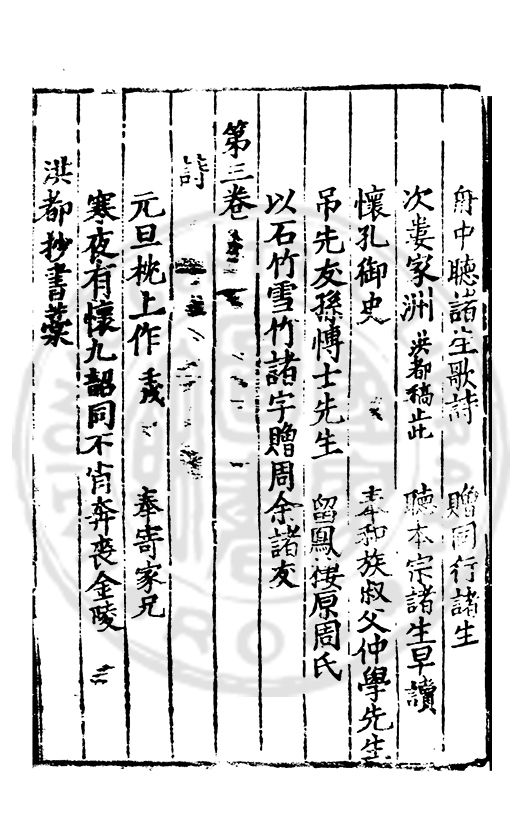 舟中聽諸生歌詩 贈同行諸生
次婁家洲 洪都稿止此 聽本宗諸生早讀
懷孔御史 奉和族叔父仲學先生
吊先友孫博士先生 留鳳棲原周氏
以石竹雪竹諸字贈周余諸友
第三卷
詩
元旦枕上作 壬戌 奉寄家兄
寒夜有懷九韶同不肖奔喪金陵 二
洪都抄書藁